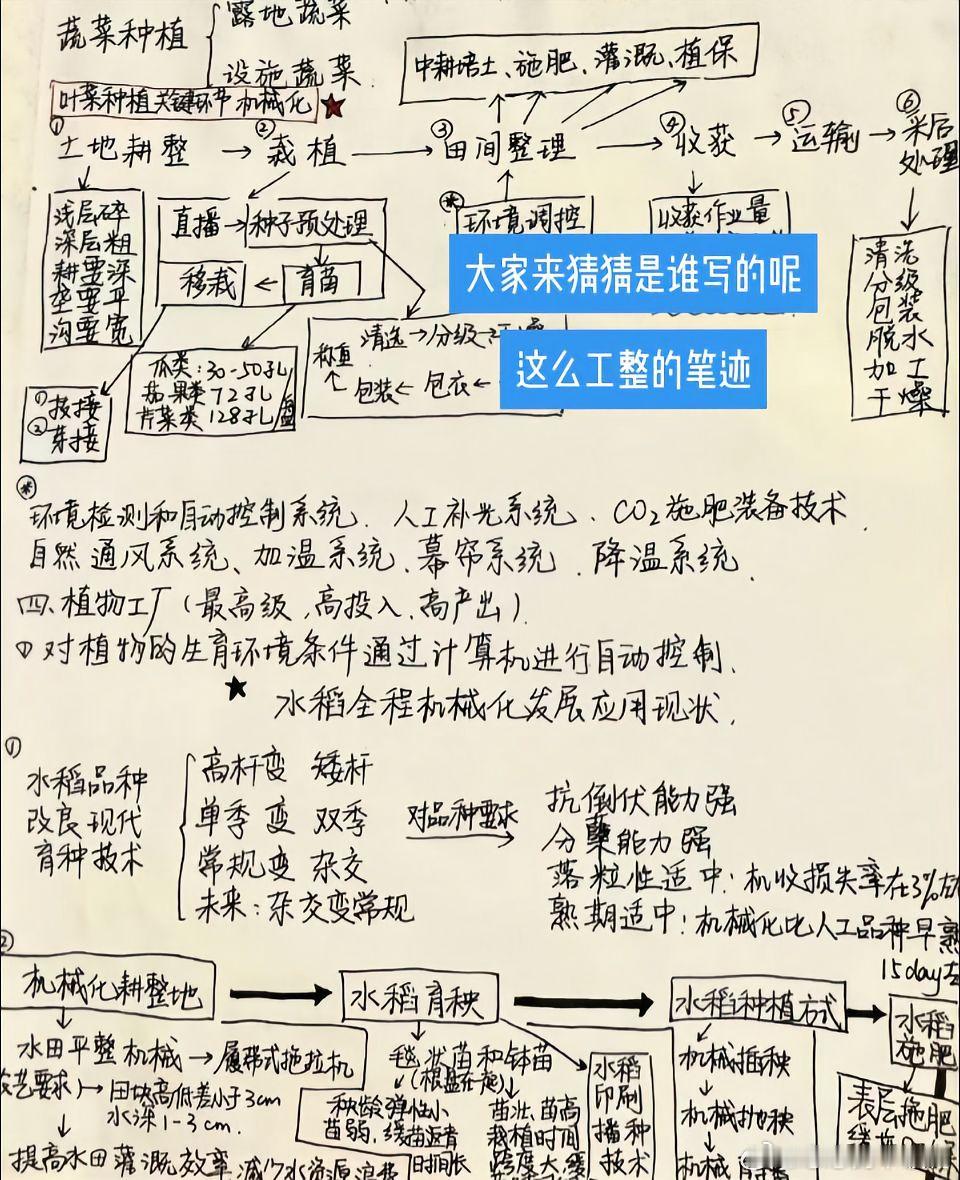 蔬菜种植
露地蔬菜
设施蔬菜
叶菜种植关键环节机械化
中耕培土、施肥、灌溉、植保
① 土地耕整 → ② 栽植 → ③ 田间整理 → ④ 收获 → ⑤ 运输 → ⑥ 采后处理
浅层碎
深层粗
耕要深
垄要平
沟要宽
直播 → 种子预处理
移栽 ← 育苗
环境调控
收获作业量
大家来猜猜是谁写的呢
这么工整的笔迹
清选 → 分级 →
称重
包装 ← 包衣 ←
瓜类:30-50孔
茄果类72孔
芹菜类128孔/盘
①拔接
②芽接
清洗
分级
包装
脱水
加工
干燥
环境检测和自动控制系统、人工补光系统、CO2施肥装备技术、
自然通风系统、加温系统、幕帘系统、降温系统、
四、植物工厂(最高级,高投入,高产出)
①对植物的生育环境条件通过计算机进行自动控制.
★ 水稻全程机械化发展应用现状.
①
水稻品种
改良现代
育种技术
高杆变 矮杆
单季变 双季
常规变 杂交
未来:杂交变常规
对品种要求
抗倒伏能力强
分蘖能力强
落粒性适中:机收损失率在3%左
熟期适中:机械化比人工品种早熟
15day左
②
机械化耕整地 → 水稻育秧 → 水稻种植方式 → 水稻施肥
水田平整机械 → 履带式拖拉机
艺要求) → 田块高低差小于3cm
水深1-3cm.
提高水田灌溉效率 减少水资源浪费
毯状苗和钵苗
(根盘在一起)
秧龄弹性小
苗弱,缓苗返青
时间长
苗壮、苗高
栽植时间
跨度大,缓
水稻
印刷
播种
技术
机械插秧
机械抛秧
机械
表层施肥